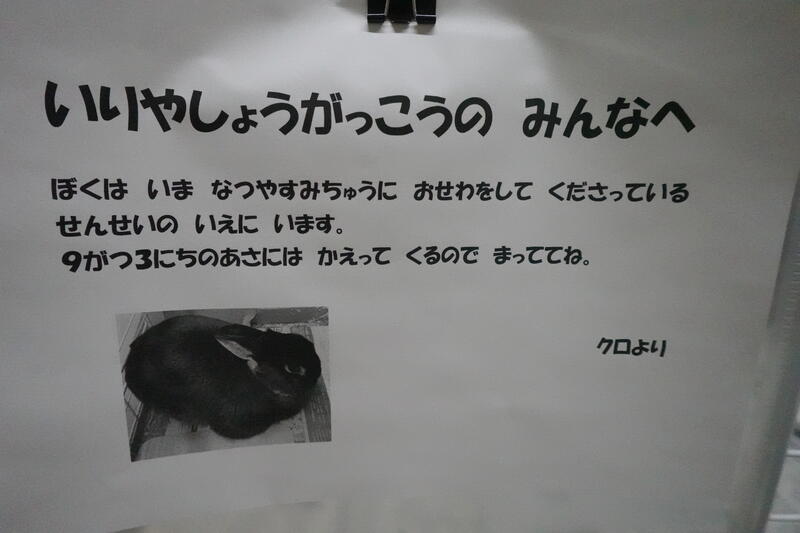 いりやしょうがっこうの みんなへ
ぼくは いま なつやすみちゅうに おせわをして くださっている
せんせいの いえに います。
9がつ3にちのあさには かえって くるので まっててね。
クロより